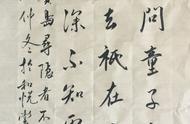 問童子
去祇在
深不知雲
賈島尋隱者不
仲冬於和悅